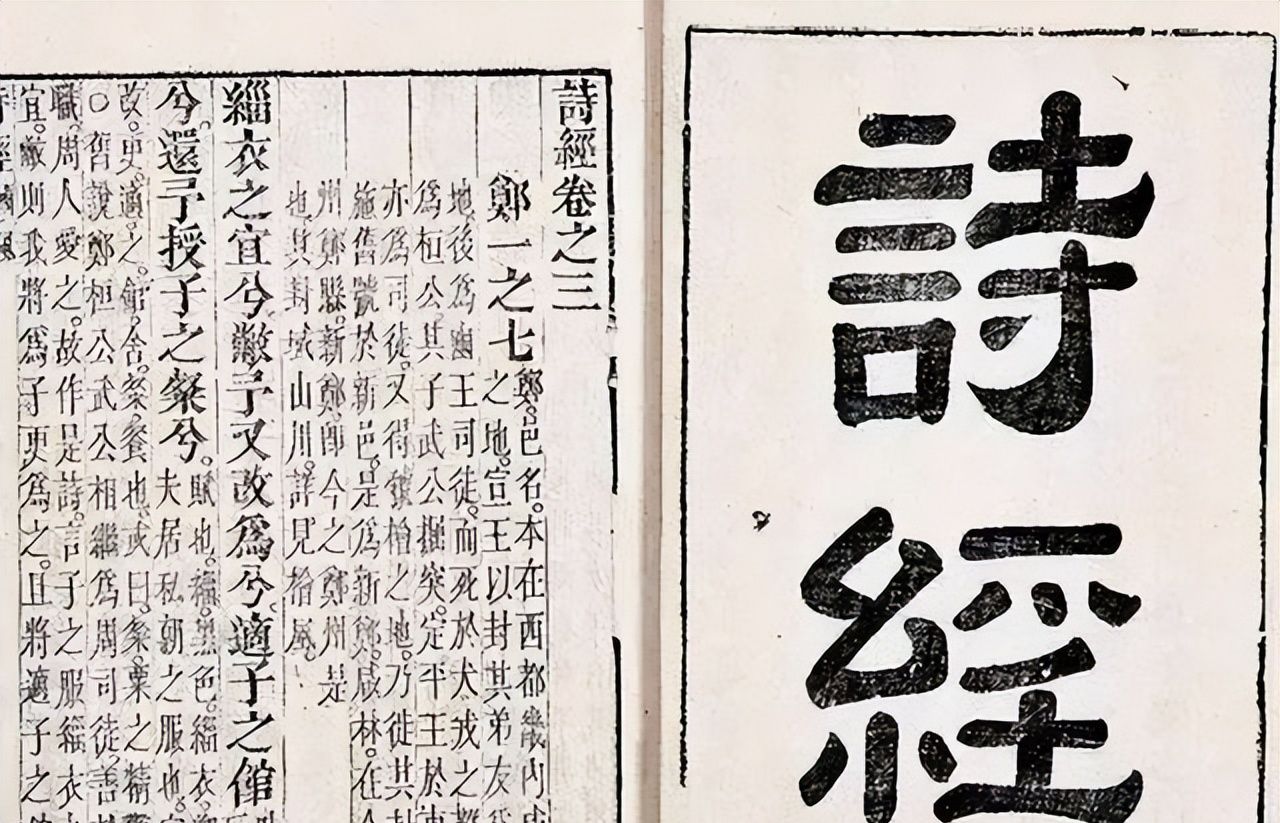 詩經
詩經卷之三
鄭一之七
鄭。邑名。本在西都畿內
之地。宣王以封其弟友
地。後爲幽王司徒。而死於犬戎之
爲桓公。其子武公掘突。定平王於東
亦爲司徒。又得虢檜之地。乃徙其封
施舊號於新邑。是爲新鄭。咸林。在
州鄭縣。新鄭。卽今之鄭州是
也。其封域山川。詳見檜風。
緇衣之宜兮。敝予又改爲兮。適子之館
兮。還予授子之粲兮。
賦也。緇。黑色。緇衣。
夫居私朝之服也。
改。更。適。之。館。舍。粲。餐也。或曰。粲。粟之精
○舊說。鄭桓公武公相繼爲周司徒。善
職。周人愛之。故作是詩。言子之服緇衣
宜。敝則我將爲子更爲之。且將適子之